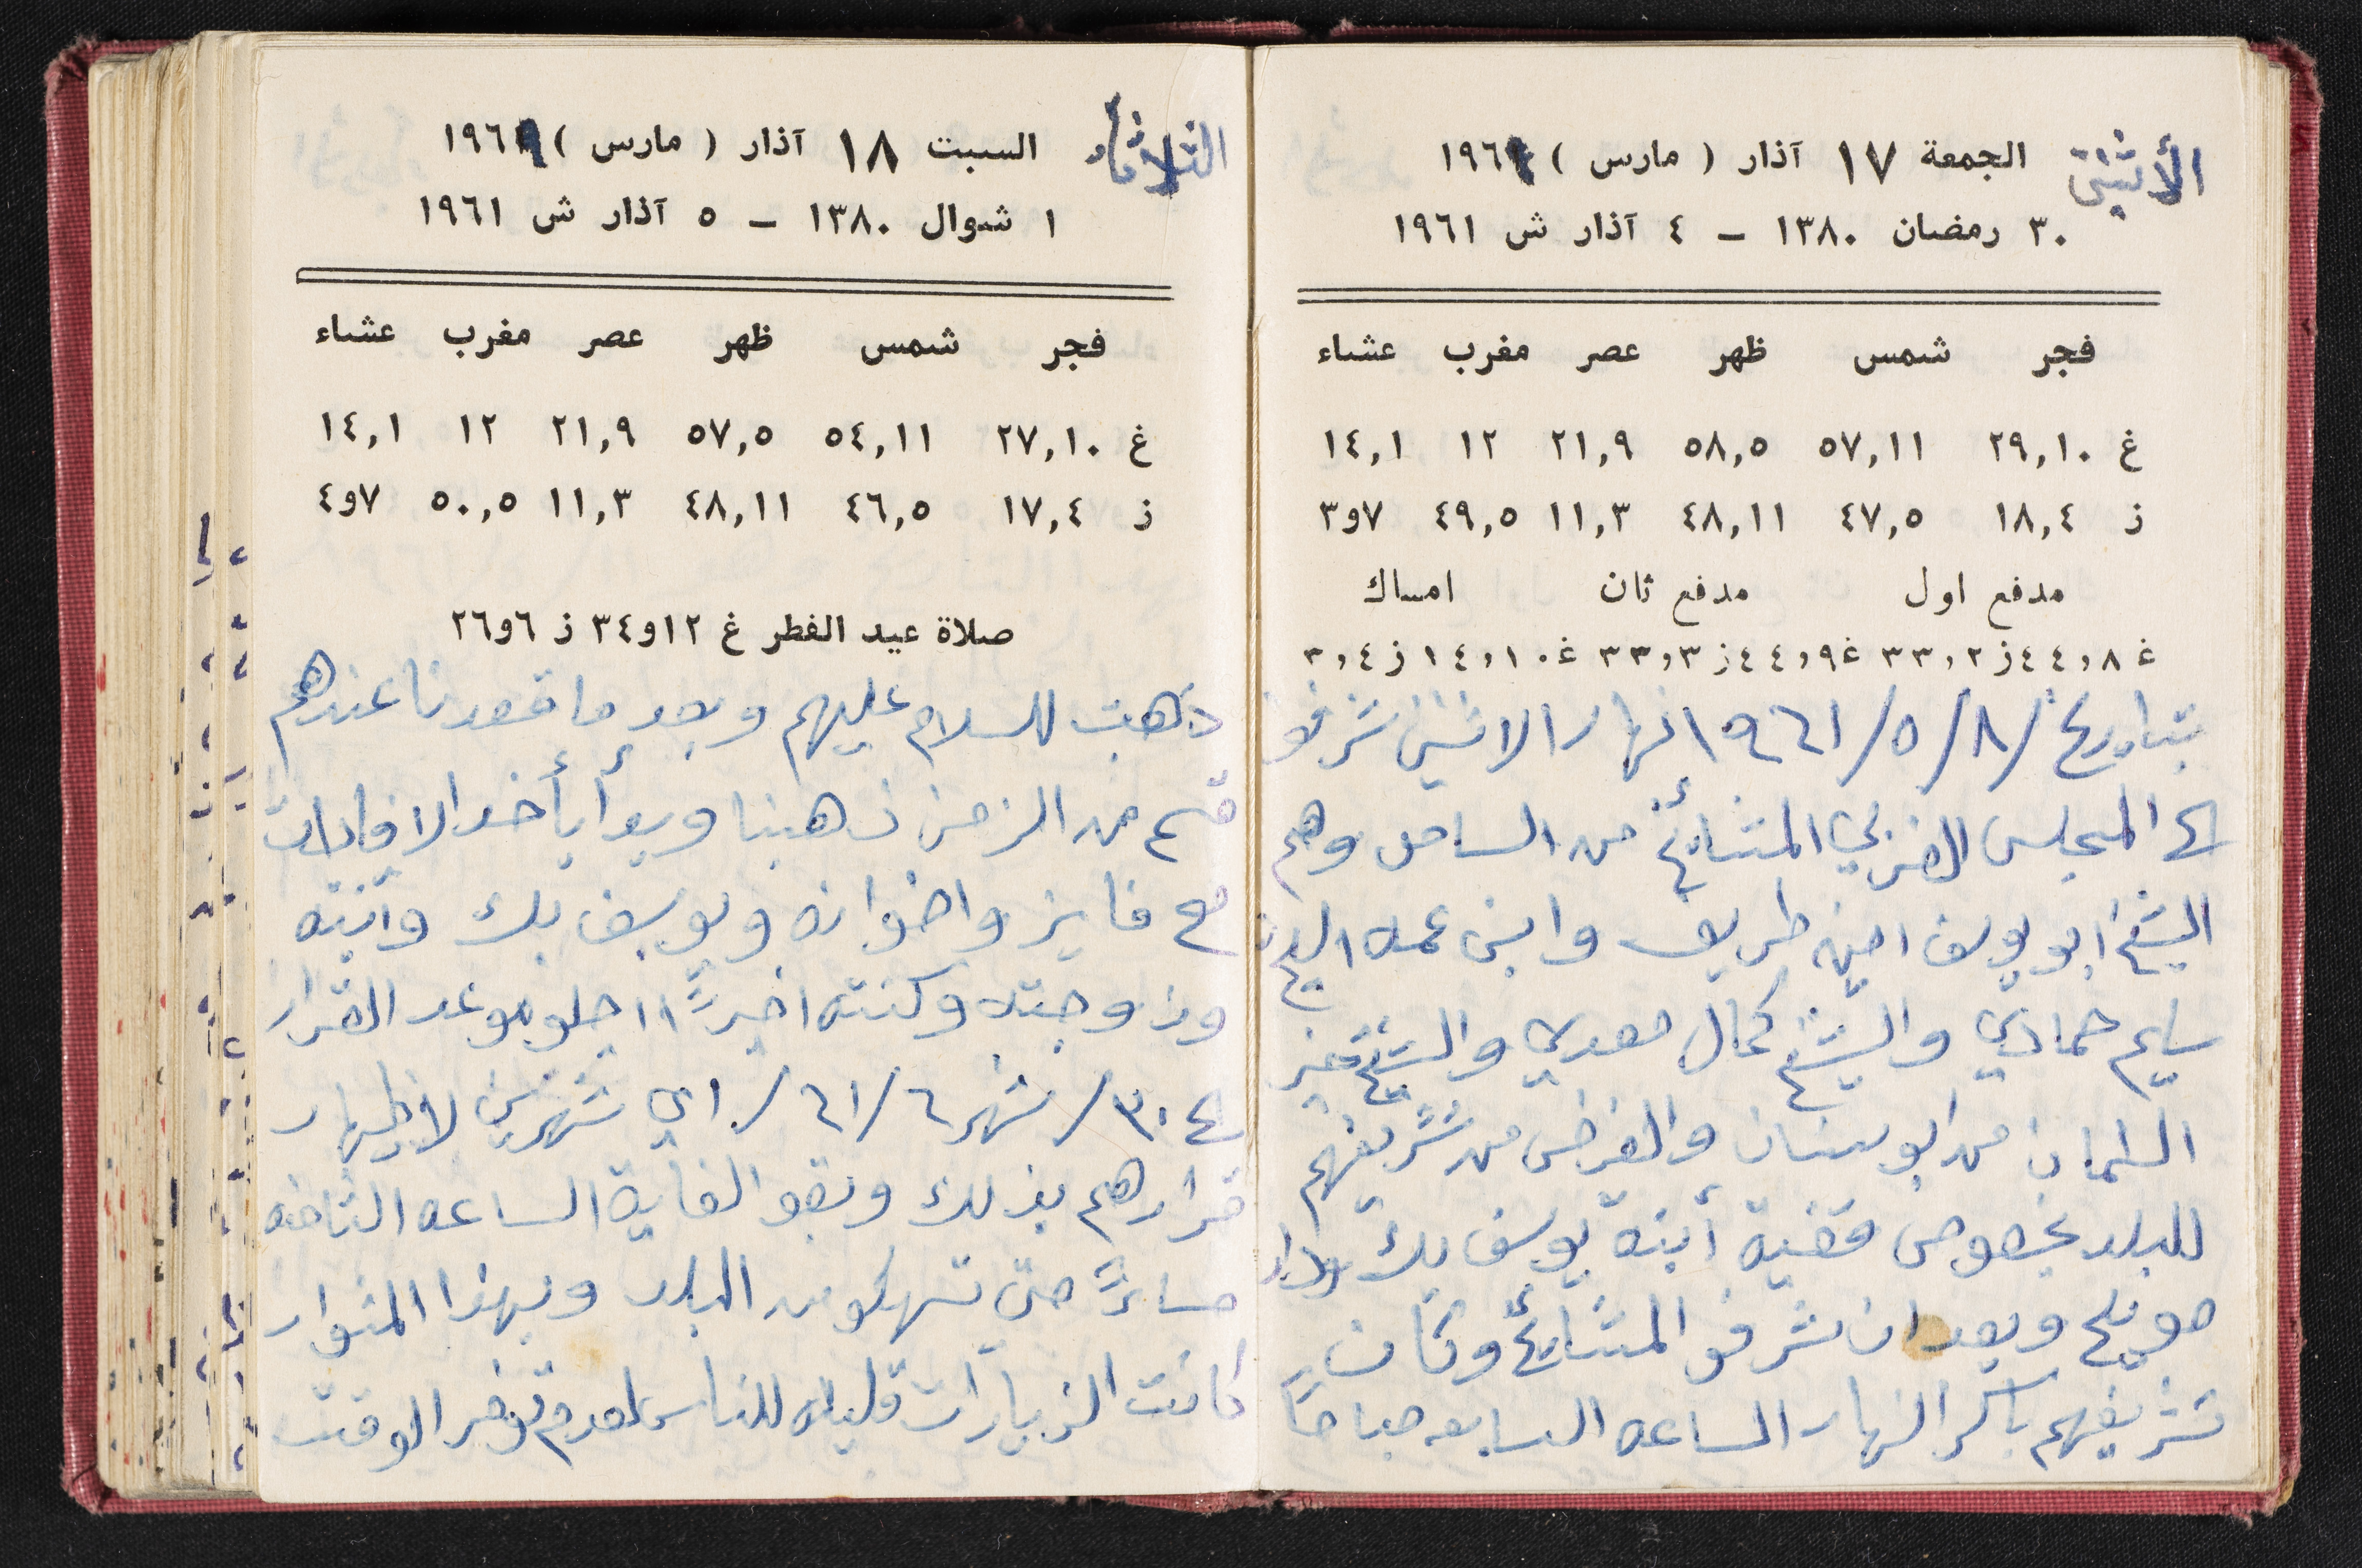 الأثنين
الجمعة ١٧ آذار ( مارس ) ١٩٦
٣٠ رمضان ١٣٨٠ – ٤ آذار ش ١٩٦١
فجر شمس ظهر عصر مغرب عشاء
غ ٢٩,١٠ ٥٧,١١ ٥٨,٥ ٢١,٩ ١٢ ١٤,١
ز ١٨,٤ ٤٧,٥ ٤٨,١١ ١١,٣ ٤٩,٥ ٧و٣
مدفع اول مدفع ثان امساك
غ ٤٤,٨ ز ٣٣,٢ غ ٤٤,٩ ز ٣٣,٣ غ ١٤,١٠ ز ٣,٤
بتاريخ ٨/٥/١٩٦١ نهار الاثنين شرفو
الى المجلس المشائخ من الساحل وهم
الشيخ ابو يوسف امين طريف وابن عمه الشيخ
سليم حمادي والشيخ كمال معدي والشيخ
السلمان من ابو سنان والغرض من تشريفهم
للبلد بخصوص قضية أبنة يوسف بك
وبعد ان شرفو المشائخ وكان
تشريفهم باكر النهار الساعه السابعه صباحاً
الثلاثاء
السبت ١٨ آذار ( مارس ) ١٩٦٩
١ شوال ١٣٨٠ – ٥ آذار ش ١٩٦١
فجر شمس ظهر عصر مغرب عشاء
غ ٢٧,١٠ ٥٤,١١ ٥٧,٥ ٢١,٩ ١٢ ١٤,١
ز ١٧,٤ ٤٦,٥ ٤٨,١١ ١١,٣ ٥٠,٥ ٧و٤
صلاة عيد الفطر غ ١٢و٣٤ ز ٦و٢٦
ذهبت للسلام عليهم وبعد ما قعدنا عندهم
قسم من الزمن ذهبنا وبدأ يأخد الافادات
مع فايز واخوانه ويوسف بك وأبنته
وزوجته وكنته اخيراً اجلو موعد القرار
الى ٣٠/شهر ٦/٦١/ اي شهرين لاظهار
قرارهم بذلك وبقو لغاية الساعه الثامنه
مساءً حتى تسهلو من البلد وبهذا المشوار
كانت الزيارات قليله للناس لعدم توفر الوقت